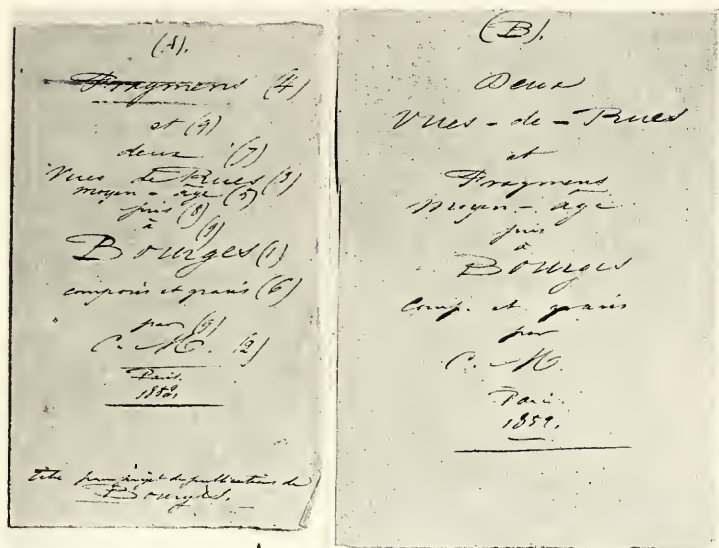 (A).
Fragmens (4)
et (9)
deux (7)
Vues de Rues (3)
moyen-âge (5)
pris (8)
à (9)
Bourges (1)
composés et gravés (6)
par (9)
C. M. (2)
Paris.
titre pour projet de publication de
Bourges.
(B).
Deux
Vues-de-Rues
et
Fragmens
Moyen-âge
pris
à
Bourges
Comp. et gravés
par
C. M.
Paris.
1852.